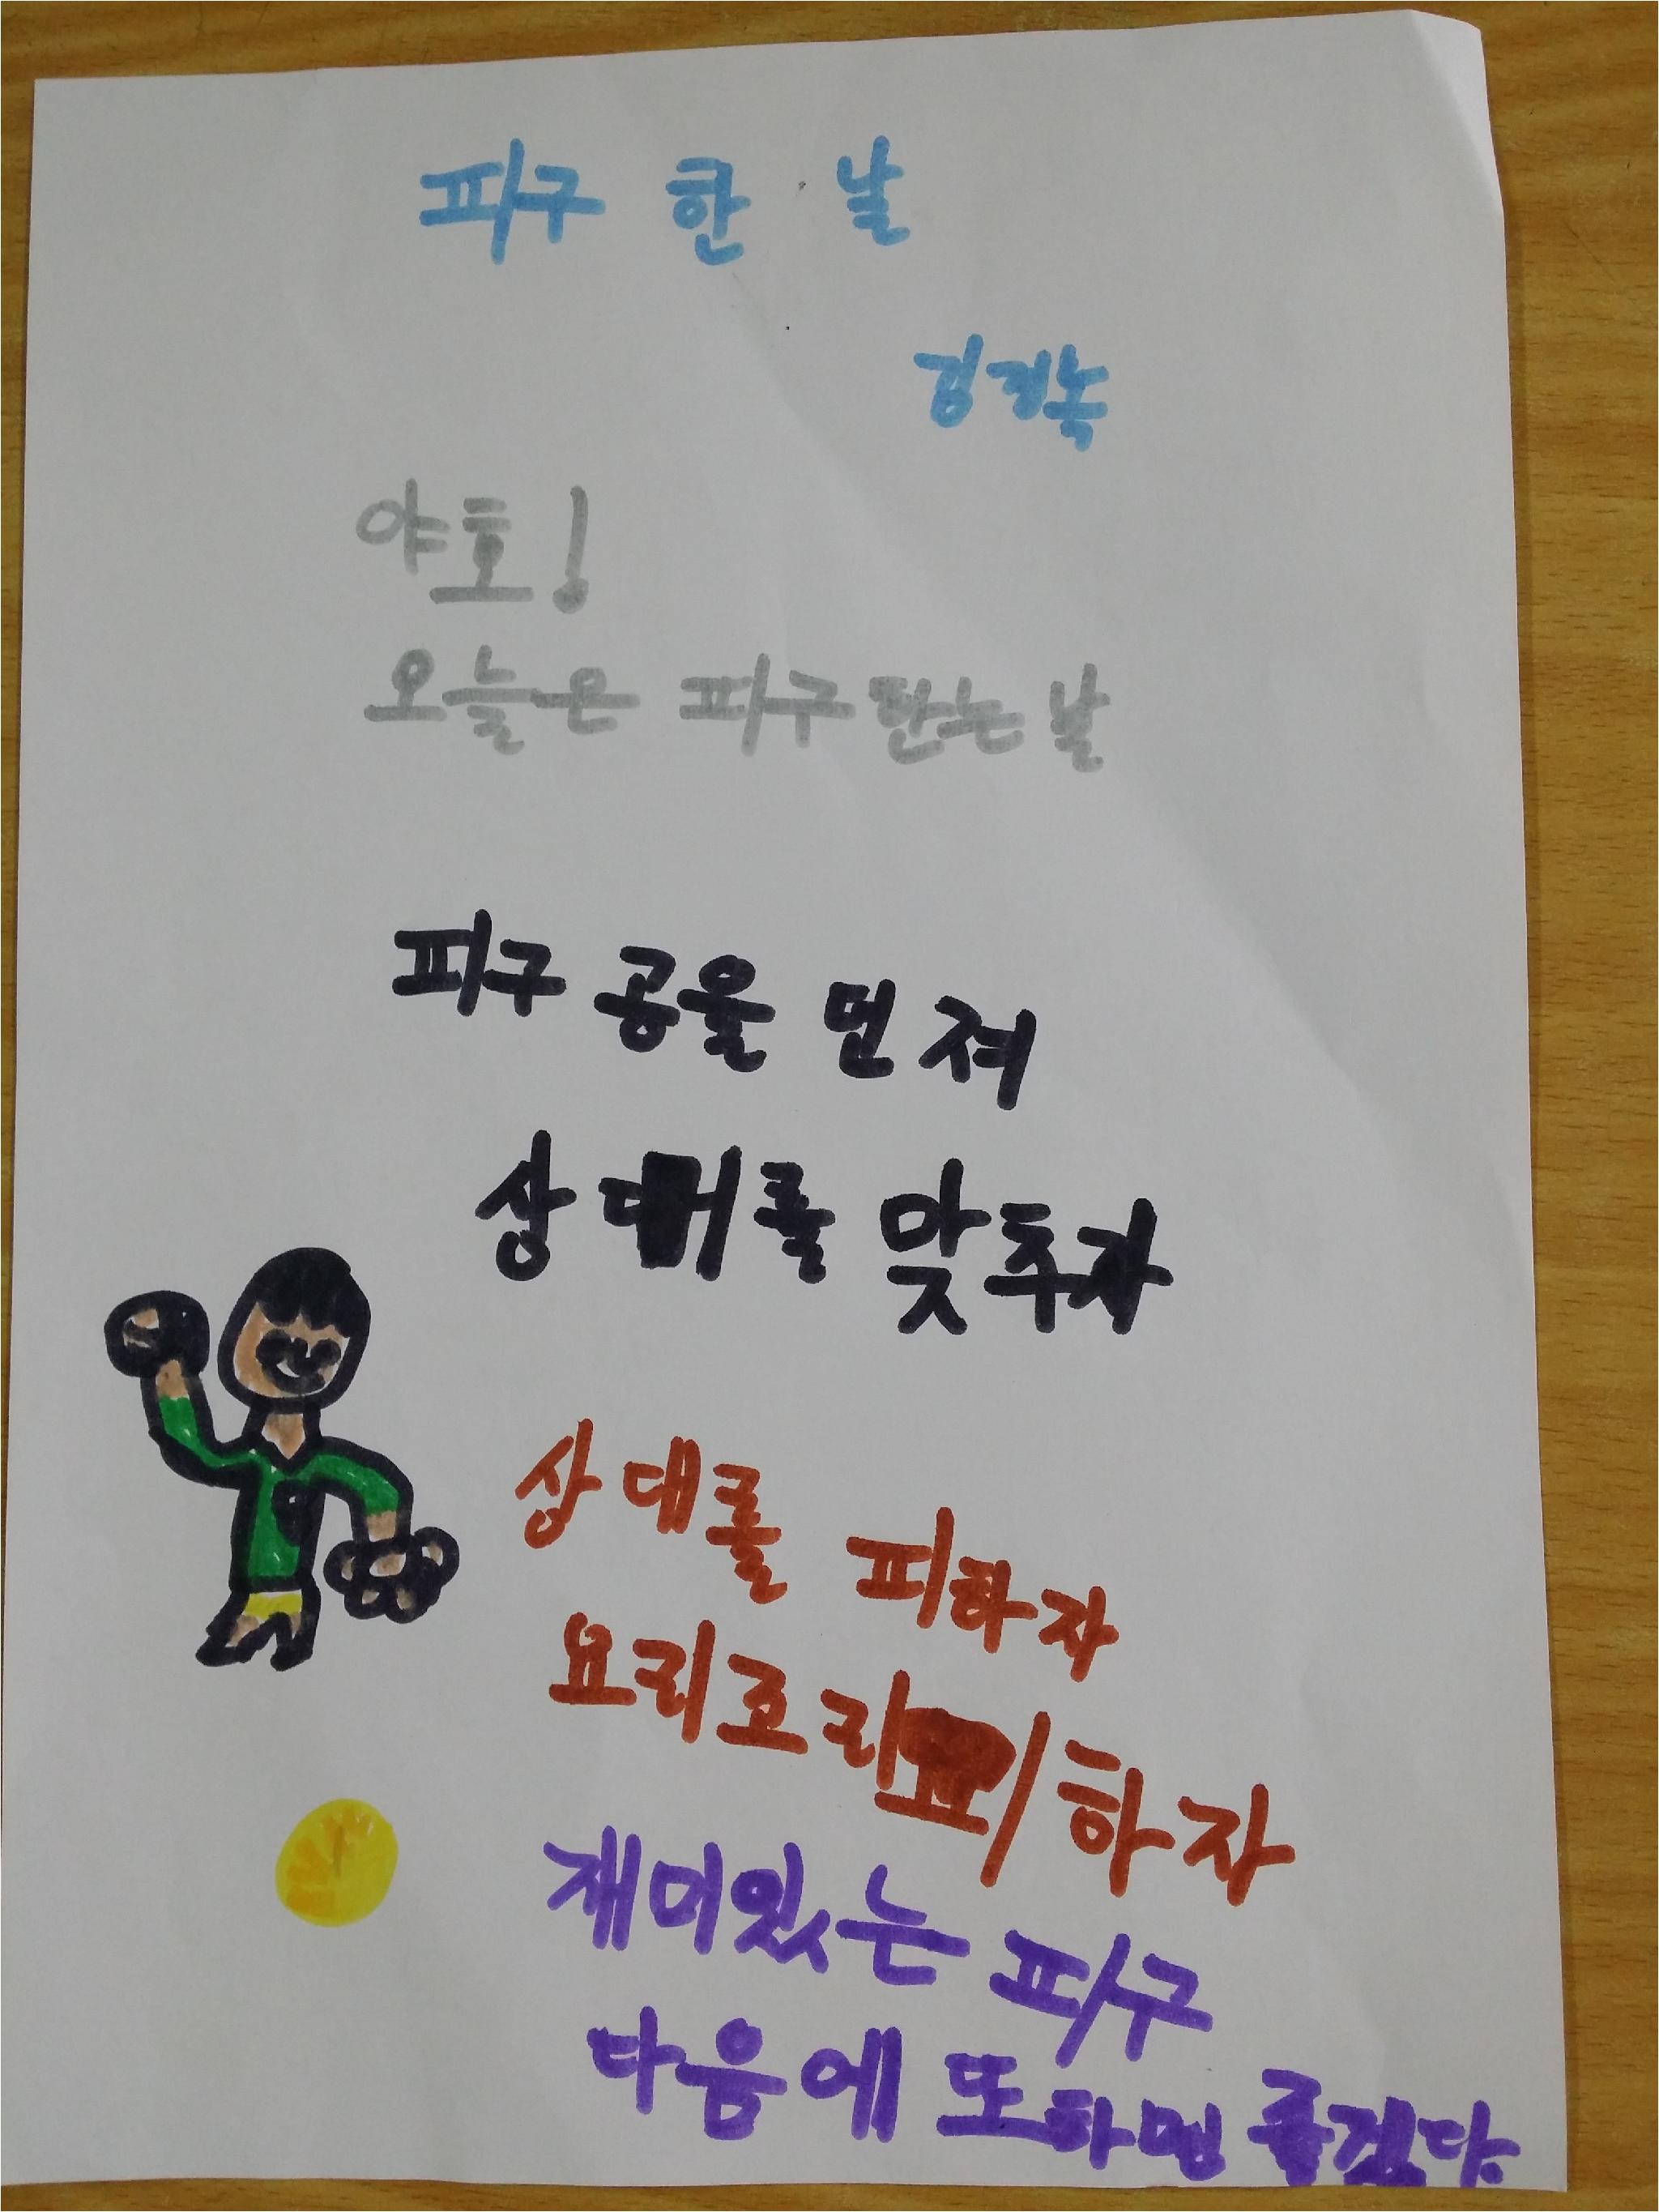 피구 한 날
야호!
오늘은 피구한는 날
피구 공을 던져
상대를 맞추자
상대를 피하자
요리조리 피하자
재미있는 피구
다음에 또하면 좋겠다.